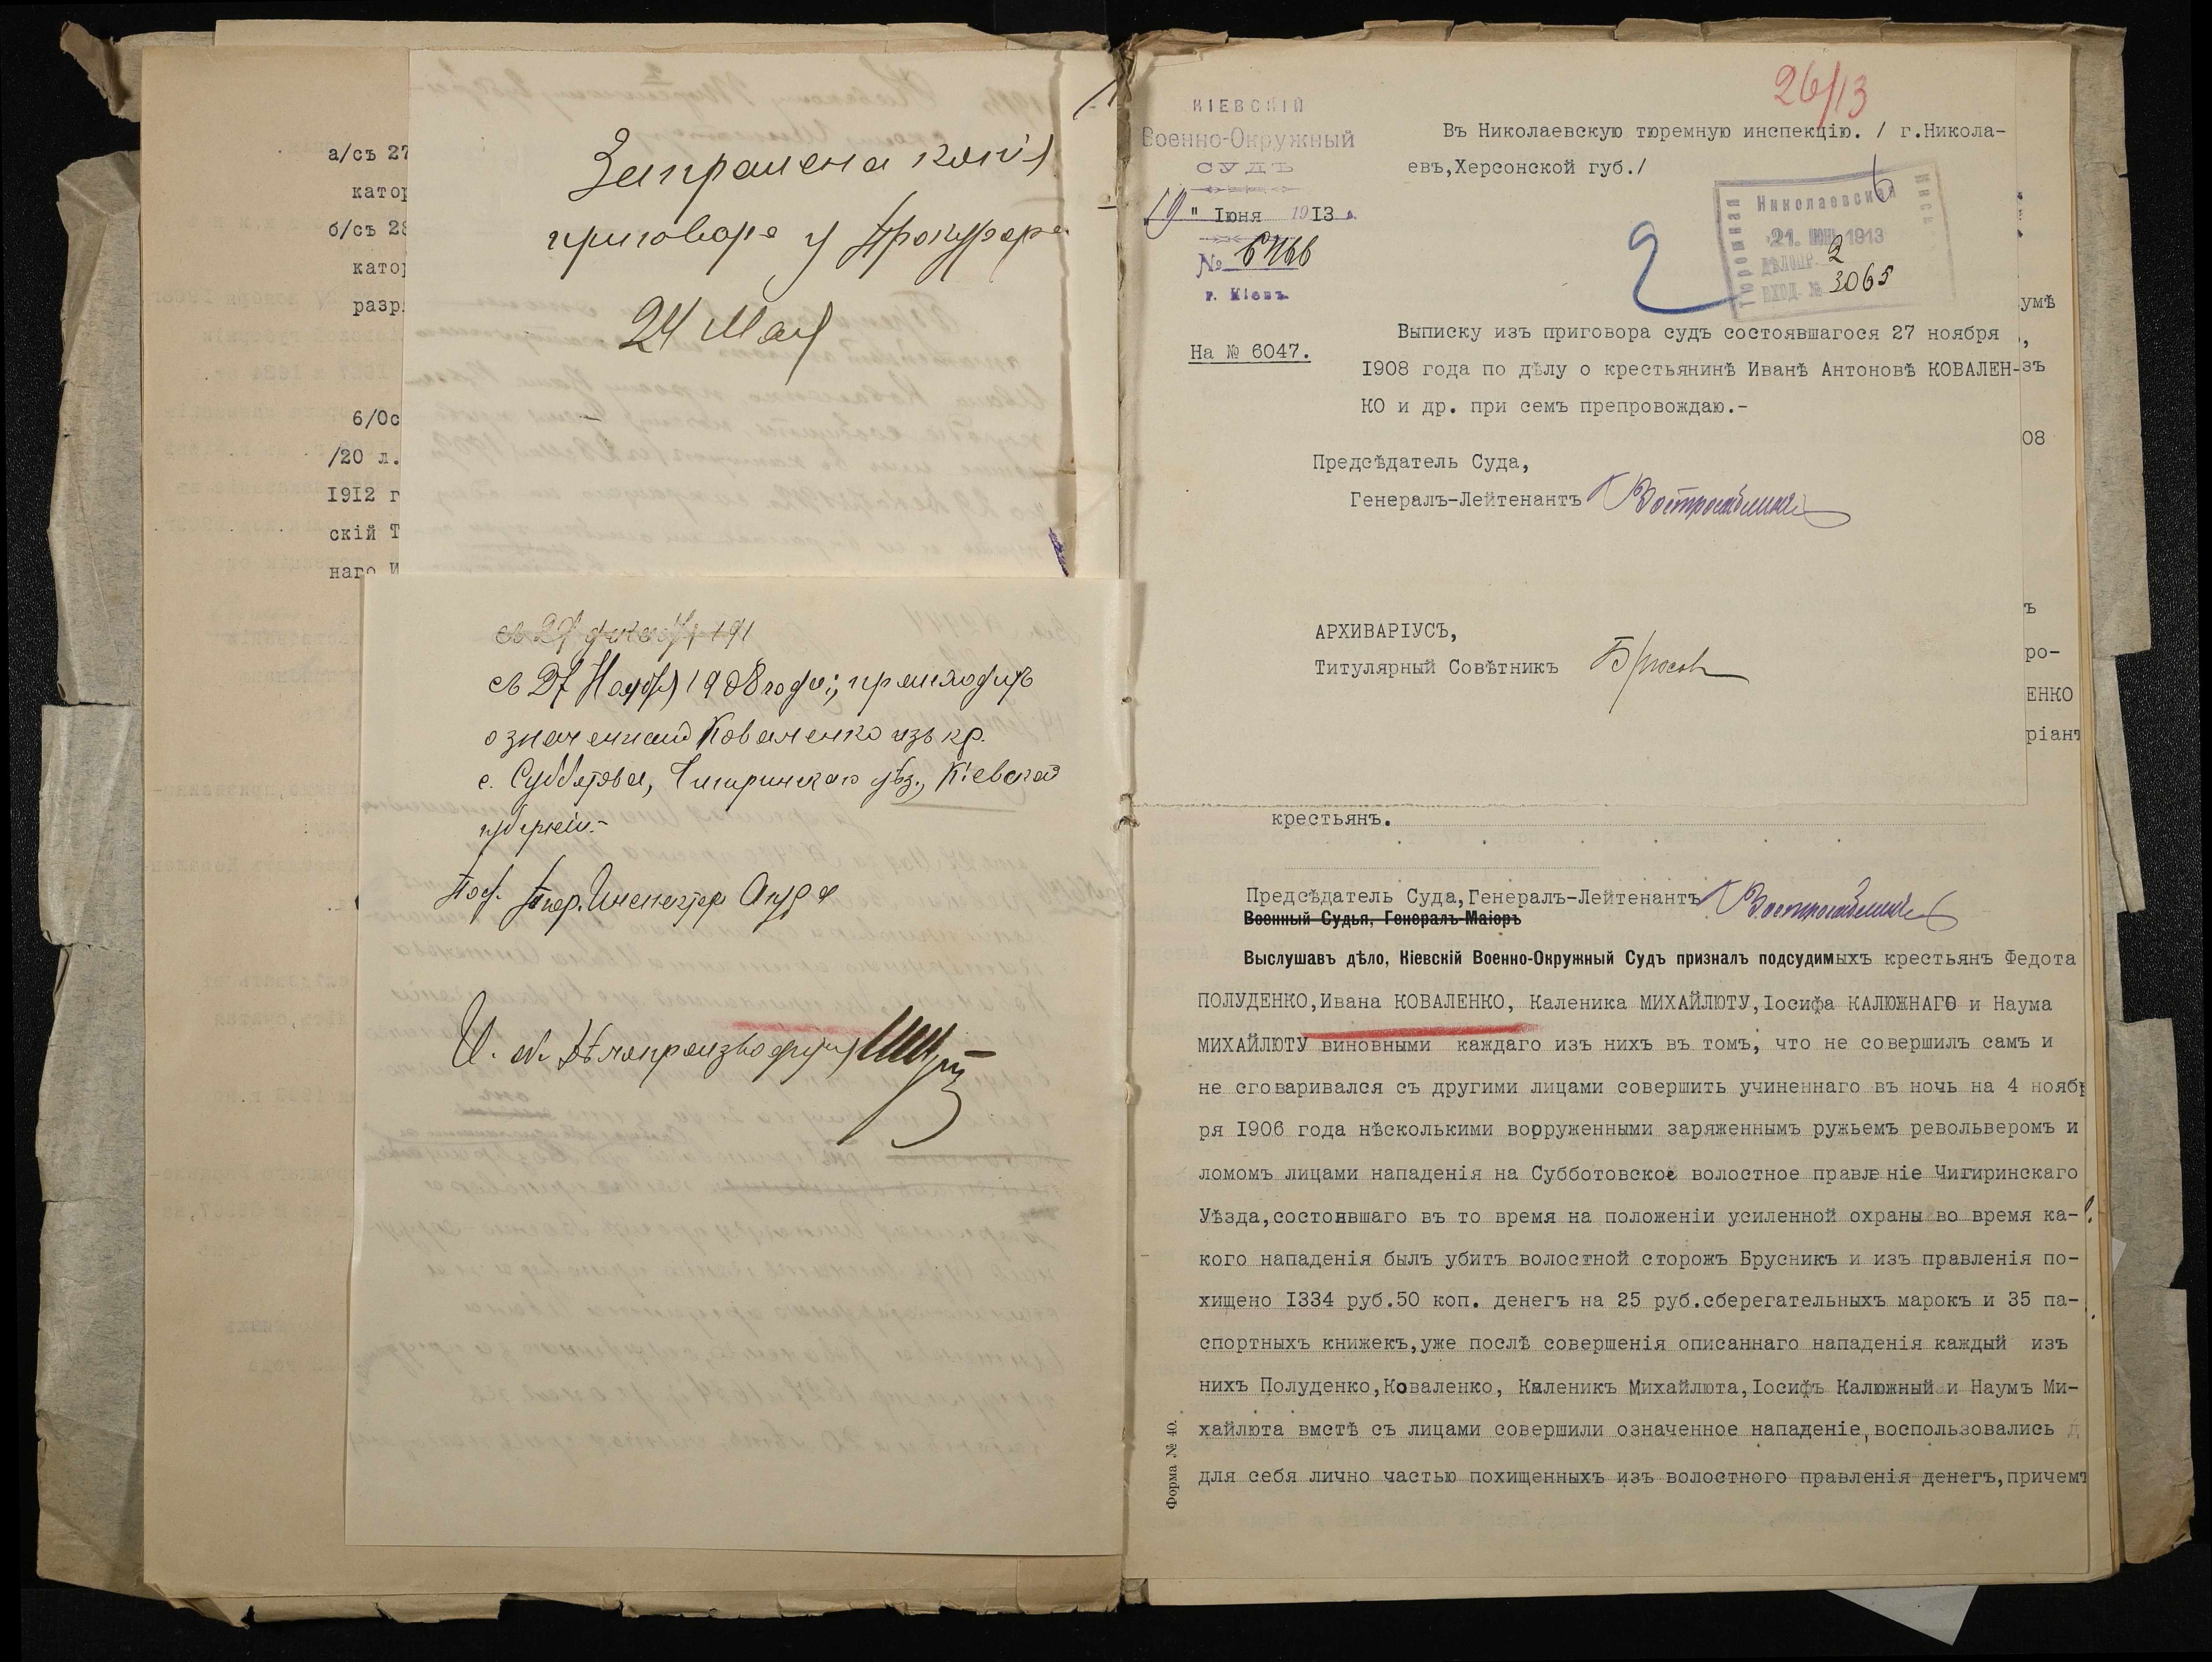 а/съ 27
катор
б/съ 28
катор
разр
6/Ос
/20 л.
1912 г
скій Т
наго И
Запрошена копія
приговора у Прокурора
24 Мая
съ 27 Ноября 1908 года; происходитъ
означенный Коваленко изъ кр.
с. Субботова, Чигиринскаго уѣз., Кіевской
губерніи.-
Тюр. Инспекторъ
И. об. Дѣлопроизводителя
26/13
КІЕВСКІЙ
Военно-Окружный
СУДЪ
19 " Іюня 1913 г.
№
г. Кіевъ
На № 6047.
Въ Николаевскую тюремную инспекцію. / г.Никола-
евъ,Херсонской губ./
6
Николаевская
Тюремная
Инсп
21. ІЮН. 1913
ДѢЛОПР. 2
ВХОД. № 3065
2
Выписку изъ приговора судъ состоявшагося 27 ноября
1908 года по дѣлу о крестьянинѣ Иванѣ Антоновѣ КОВАЛЕН-
КО и др. при семъ препровождаю.-
Предсѣдатель Суда,
Генералъ-Лейтенантъ
АРХИВАРІУСЪ,
Титулярный Совѣтникъ
умѣ
,
зъ
08
ъ
ро-
ЕНКО
ріант
крестьянъ.
Предсѣдатель Суда,Генералъ-Лейтенантъ
Военный Судья, Генералъ-Маіоръ
Выслушавъ дѣло, Кіевскій Военно-Окружный Судъ призналъ подсудимыхъ крестьянъ Федота
ПОЛУДЕНКО,Ивана КОВАЛЕНКО, Каленика МИХАЙЛЮТУ,Іосифа КАЛЮЖНАГО и Наума
МИХАЙЛЮТУ виновными каждаго изъ нихъ въ томъ, что не совершилъ самъ и
не сговаривался съ другими лицами совершить учиненнаго въ ночь на 4 нояб
ря 1906 года нѣсколькими ворруженными заряженнымъ ружьемъ револьверомъ и
ломомъ лицами нападенія на Субботовское волостное правленіе Чигиринскаго
Уѣзда,состоявшаго въ то время на положеніи усиленной охраны во время ка-
кого нападенія былъ убитъ волостной сторожъ Брусникъ и изъ правленія по-
хищено 1334 руб.50 коп. денегъ на 25 руб.сберегательныхъ марокъ и 35 па-
спортныхъ книжекъ,уже послѣ совершенія описаннаго нападенія каждый изъ
нихъ Полуденко,Коваленко, Каленикъ Михайлюта,Іосифъ Калюжный и Наумъ Ми-
хайлюта вмстѣ съ лицами совершили означенное нападеніе,воспользовались д
для себя лично частью похищенныхъ изъ волостного правленія денегъ,причемъ
Форма № 40.